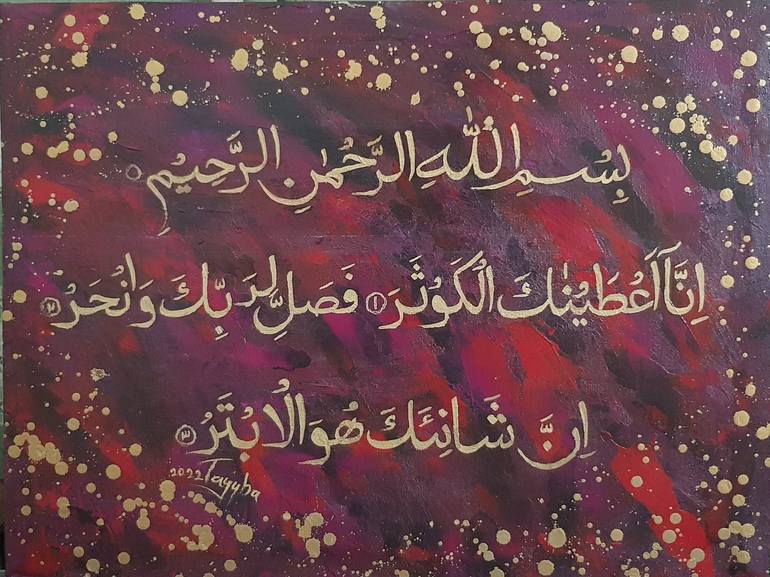 بِسْمِ اللّٰهِ الرَّحْمٰنِ الرَّحِيْمِ
اِنَّآ اَعْطَيْنٰكَ الْكَوْثَرَ ۝١ فَصَلِّ لِرَبِّكَ وَانْحَرْ ۝٢
اِنَّ شَانِئَكَ هُوَ الْاَبْتَرُ ۝٣
2022 Tayyba